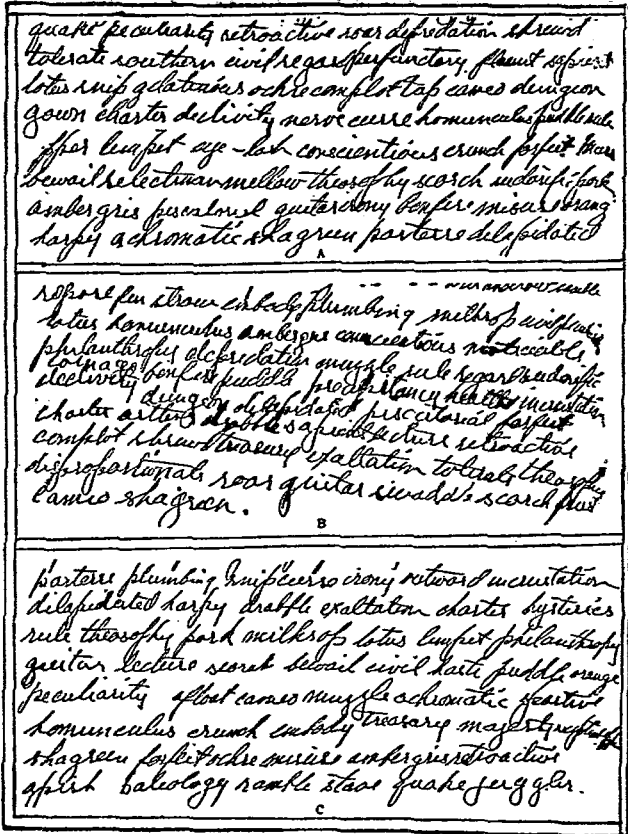 quake peculiarity retroactive soar depredation shrewd
tolerate southern civil regard perfunctory flaunt sapient
lotus snip gelatinous ochre complot tap cameo dungeon
gown charter declivity nerve curse homunculus puddle rule
limpet age-lash conscientious crunch forfeit
bewail selectman mellow theosophy scorch sudorific pork
ambergris piscatorial guitar irony bonfire misuse orang
harpy achromatic shagreen parterre dilapidated
A
embody plumbing milksop civil
lotus homunculus ambergris conscientious noticeable
philanthropy depredation muzzle rule regard sudorific
declivity bonfire puddle precipitancy incrustation
dungeon dilapidated piscatorial forfeit
charter drabble sapient lecture retroactive
complot shrewd treasury exaltation tolerate theosophy
disproportionate soar guitar scorch
cameo shagreen.
B
parterre plumbing snip curse irony outward incrustation
dilapidated harpy drabble exaltation charter hysterics
rule theosophy pork milksop lotus limpet philanthropy
guitar lecture secret bewail civil haste puddle orange
peculiarity afloat cameo muzzle achromatic
homunculus crunch embody treasury majesty
shagreen forfeit ochre misuse ambergris retroactive
apish ramble stave quake juggler.
C